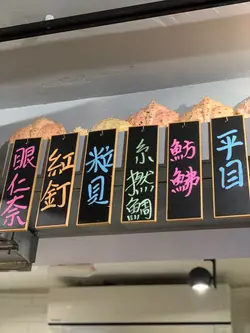 平目
魴鮄
糸撚鯛
粒貝
紅釘
眼仁奈